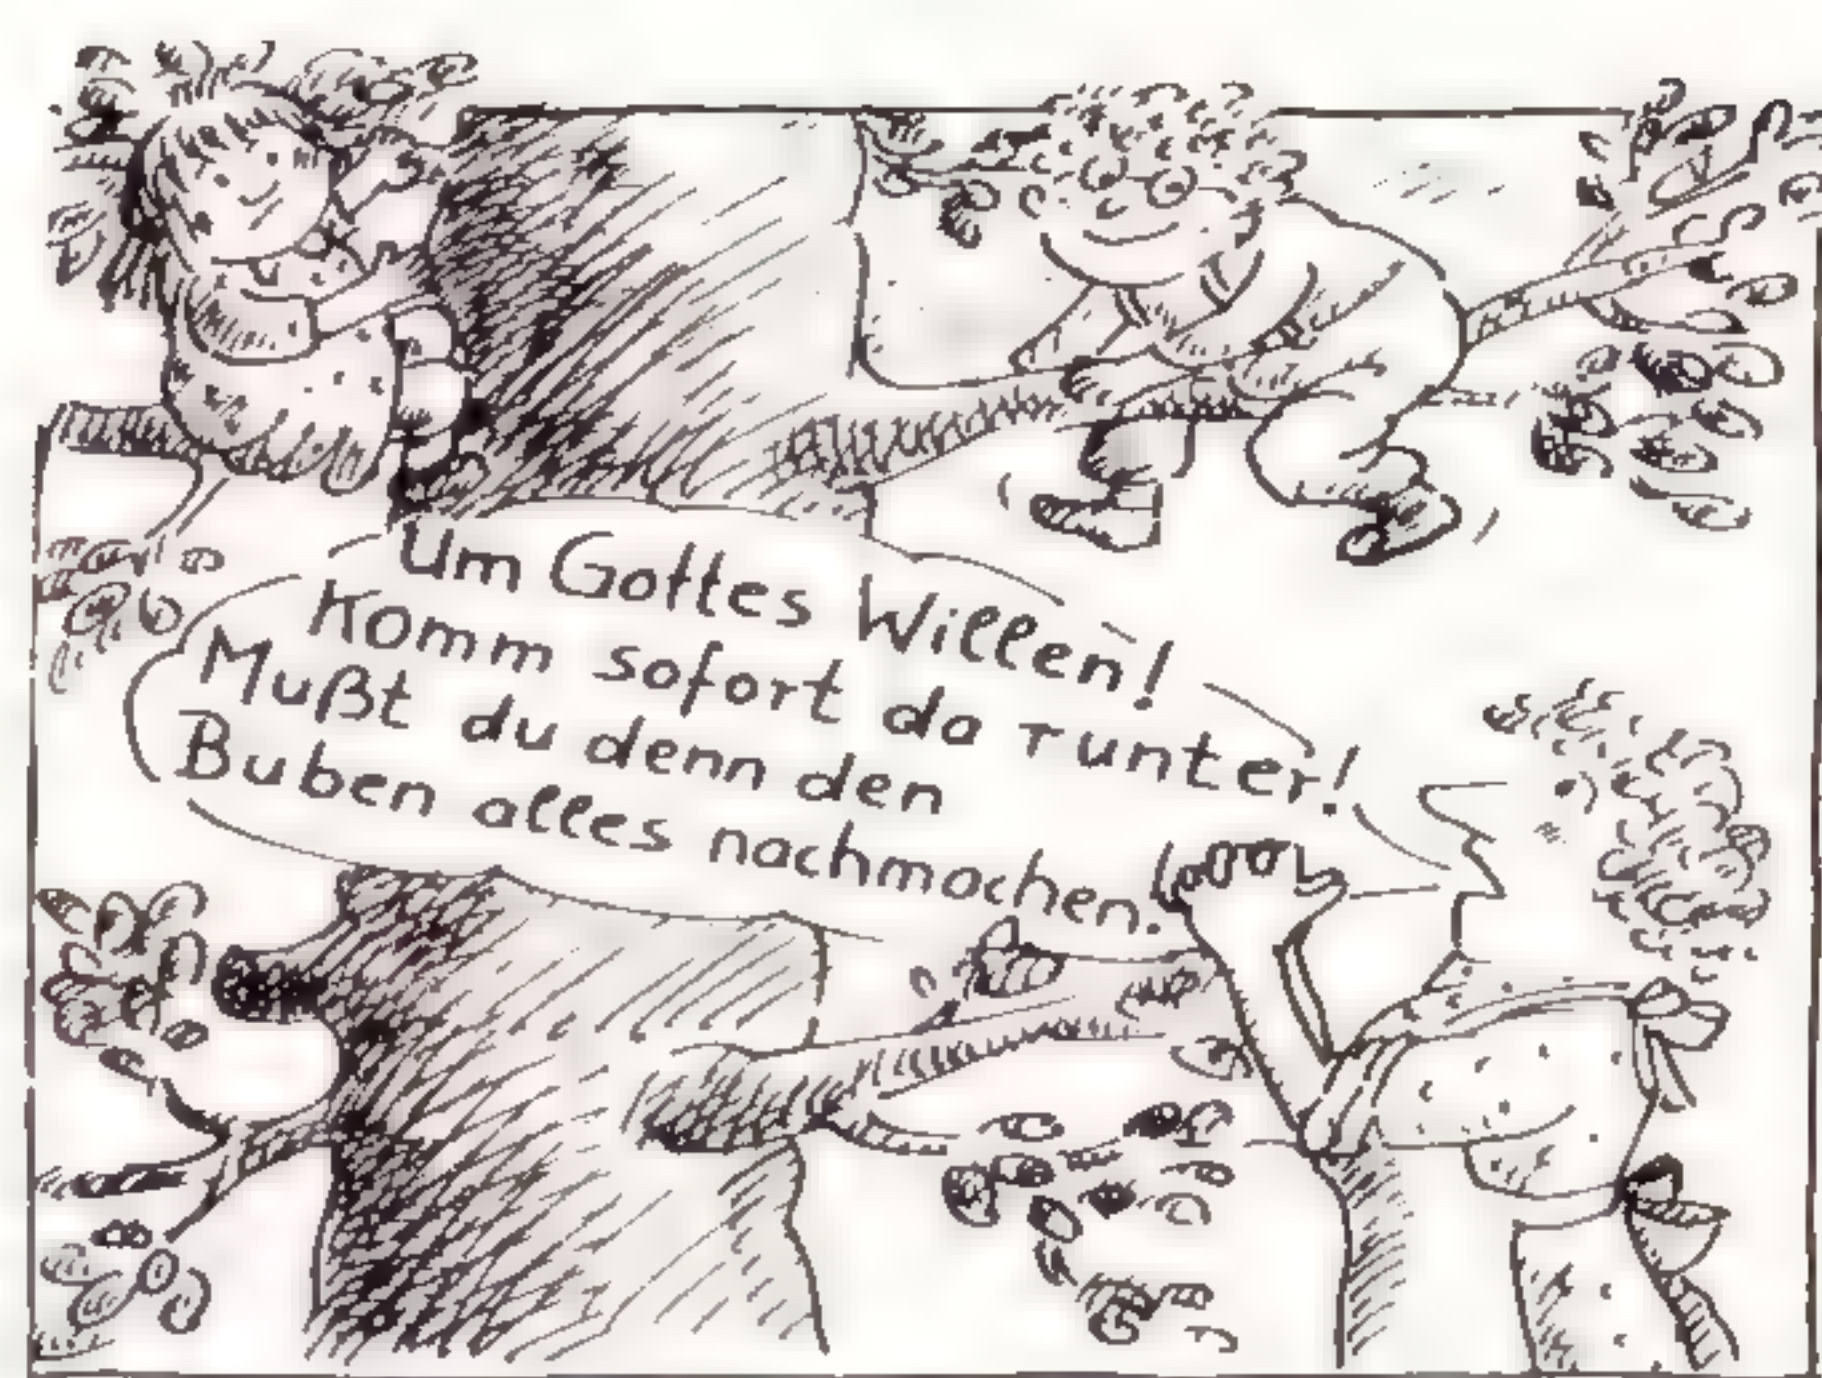 Um Gottes Willen!
Komm sofort da runter!
Mußt du denn den
Buben alles nachmachen!